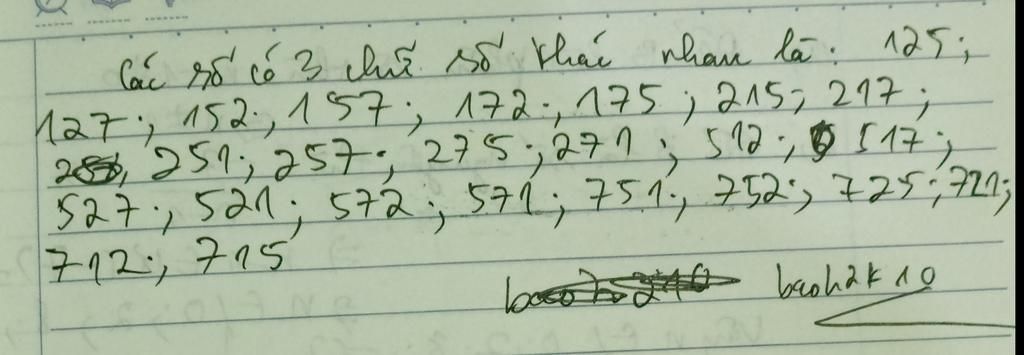 Các số có 3 chữ số khác nhau là: 125;
127; 152; 157; 172; 175; 215; 217;
251; 257; 275; 271; 512; 517;
527; 521; 572; 571; 751; 752; 725; 721;
712; 715
baoh2k10